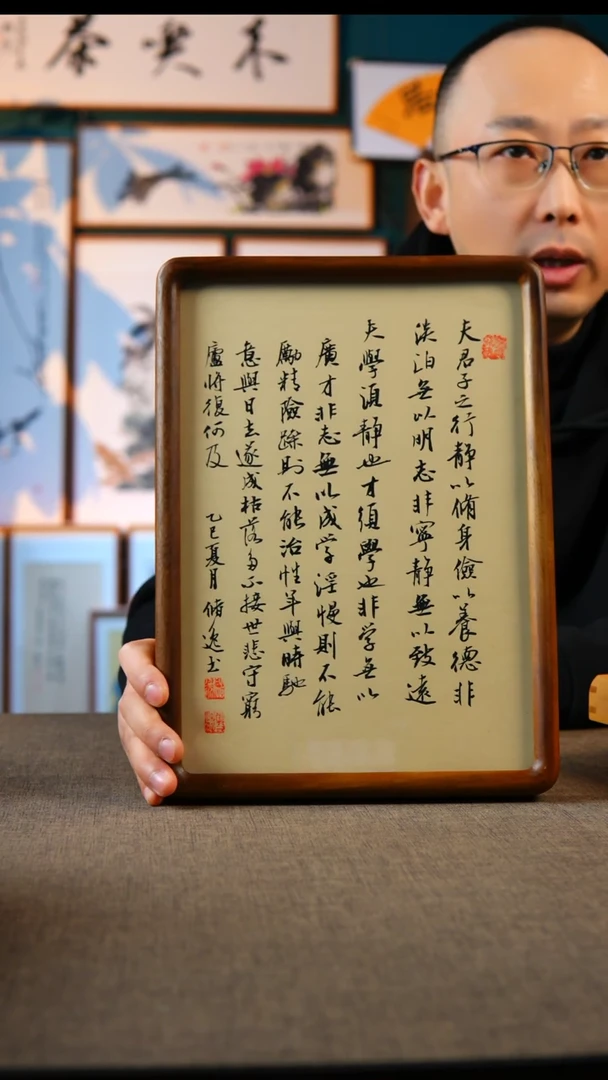 夫君子之行静以脩身儉以養德非
淡泊無以明志非寧静無以致遠
夫學須静也才須學也非学無以
廣才非志無以成学淫慢則不能
勵精險躁則不能治性年與時馳
意與日去遂成枯落多不接世悲守窮
廬將復何及 乙巳夏月脩逸书